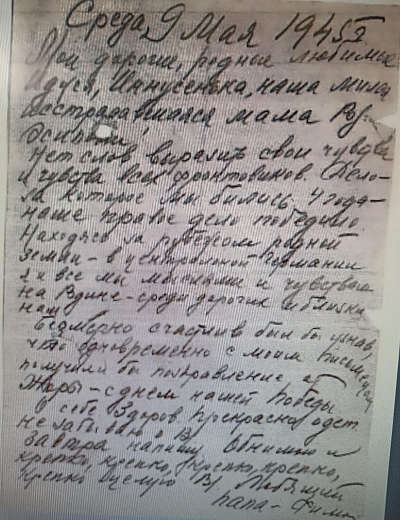 Среда, 9 Мая 1945 г
Мои дорогие, родные любимые
Идуся, Иннусенька, наша милая
исстрадавшаяся мама
Нет слов выразить свои чувства
и чувства всех фронтовиков. Дело-
за которое мы бились 4 года-
наше правое дело победило.
Находясь за рубежом родной
земли - в центральной Германии
я и все мы мыслями и чувствами
на Родине - среди дорогих и близких
нам
Безмерно счастлив был бы узнав,
что одновременно с моим письмом
получили бы поздравление от
Жоры - с днем нашей Победы.
О себе. Здоров. Прекрасно одет
не забываю о В/ Обнимаю и
завтра напишу
крепко, крепко, крепко, крепко,
крепко целую В/ Любящий
папа - Фима